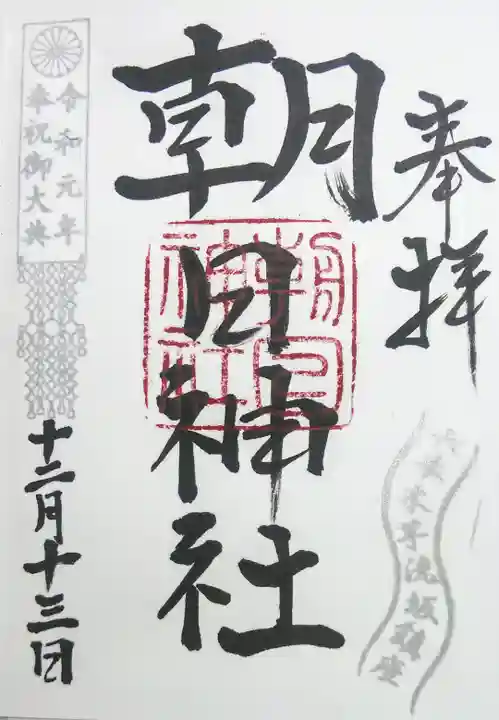 奉拝
朝日神社
朝日
神社
令和元年
奉祝御大典
十二月十三日